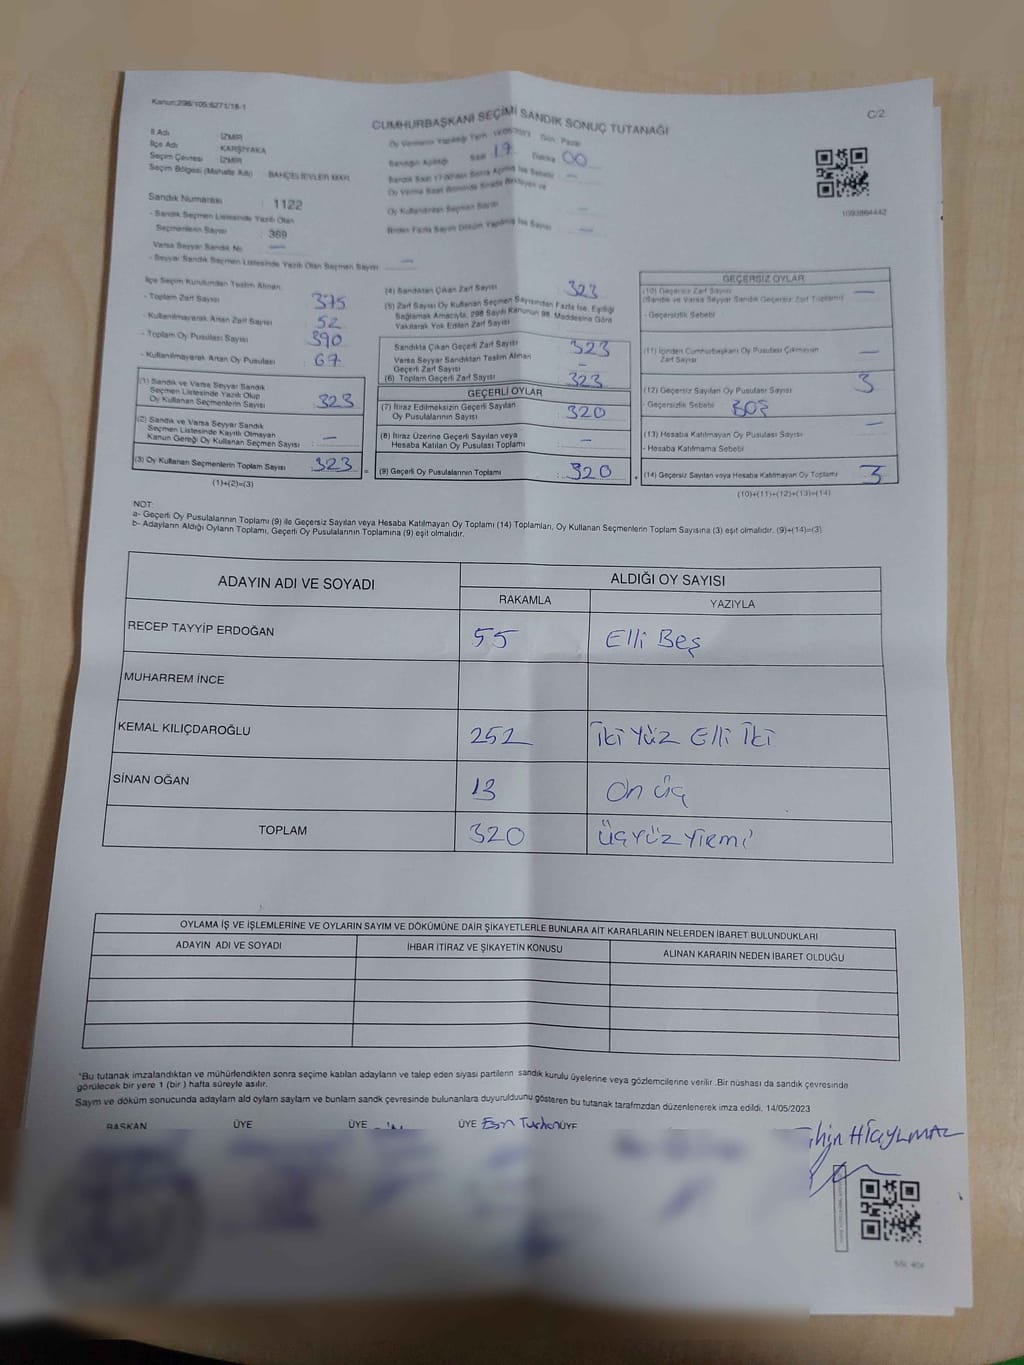 Kanun:298/105;6271/18-1
C/2
CUMHURBAŞKANI SEÇİMİ SANDIK SONUÇ TUTANAĞI
İl Adı İZMİR
İlçe Adı KARŞIYAKA
Seçim Çevresi İZMİR
Seçim Bölgesi (Mahalle Adı) BAHÇELİEVLER MAH.
Oy Vermenin Yapıldığı Tarih 14/05/2023 Gün Pazar
Sandığın Açıldığı Saat 19 Dakika 00
Sandık Saat 17:00'den Sonra Açılmış İse Sebebi : —
Oy Verme Saati Bitiminde Sırada Bekleyen ve
Oy Kullandırılan Seçmen Sayısı —
Birden Fazla Sayım Döküm Yapılmış İse Sayısı —
1093864442
Sandık Numarası : 1122
- Sandık Seçmen Listesinde Yazılı Olan
Seçmenlerin Sayısı : 369
Varsa Seyyar Sandık No —
- Seyyar Sandık Seçmen Listesinde Yazılı Olan Seçmen Sayısı —
İlçe Seçim Kurulundan Teslim Alınan
- Toplam Zarf Sayısı 375
- Kullanılmayarak Artan Zarf Sayısı 52
- Toplam Oy Pusulası Sayısı 390
- Kullanılmayarak Artan Oy Pusulası 67
(1) Sandık ve Varsa Seyyar Sandık
Seçmen Listesinde Yazılı Olup
Oy Kullanan Seçmenlerin Sayısı : 323
(2) Sandık ve Varsa Seyyar Sandık
Seçmen Listesinde Kayıtlı Olmayan
Kanun Gereği Oy Kullanan Seçmen Sayısı : —
(3) Oy Kullanan Seçmenlerin Toplam Sayısı : 323 =
(1)+(2)=(3)
(4) Sandıktan Çıkan Zarf Sayısı 323
(5) Zarf Sayısı Oy Kullanan Seçmen Sayısından Fazla İse, Eşitliği
Sağlamak Amacıyla, 298 Sayılı Kanunun 98. Maddesine Göre
Yakılarak Yok Edilen Zarf Sayısı
Sandıkta Çıkan Geçerli Zarf Sayısı 323
Varsa Seyyar Sandıktan Teslim Alınan
Geçerli Zarf Sayısı —
(6) Toplam Geçerli Zarf Sayısı 323
GEÇERLİ OYLAR
(7) İtiraz Edilmeksizin Geçerli Sayılan
Oy Pusulalarının Sayısı : 320
(8) İtiraz Üzerine Geçerli Sayılan veya
Hesaba Katılan Oy Pusulası Toplamı : —
(9) Geçerli Oy Pusulalarının Toplamı : 320 +
GEÇERSİZ OYLAR
(10) Geçersiz Zarf Sayısı —
(Sandık ve Varsa Seyyar Sandık Geçersiz Zarf Toplamı)
- Geçersizlik Sebebi
(11) İçinden Cumhurbaşkanı Oy Pusulası Çıkmayan
Zarf Sayısı —
(12) Geçersiz Sayılan Oy Pusulası Sayısı 3
- Geçersizlik Sebebi BOŞ
(13) Hesaba Katılmayan Oy Pusulası Sayısı —
- Hesaba Katılmama Sebebi
(14) Geçersiz Sayılan veya Hesaba Katılmayan Oy Toplamı 3
(10)+(11)+(12)+(13)=(14)
NOT:
a- Geçerli Oy Pusulalarının Toplamı (9) ile Geçersiz Sayılan veya Hesaba Katılmayan Oy Toplamı (14) Toplamları, Oy Kullanan Seçmenlerin Toplam Sayısına (3) eşit olmalıdır. (9)+(14)=(3)
b- Adayların Aldığı Oyların Toplamı, Geçerli Oy Pusulalarının Toplamına (9) eşit olmalıdır.
ADAYIN ADI VE SOYADI ALDIĞI OY SAYISI
RAKAMLA YAZIYLA
RECEP TAYYİP ERDOĞAN 55 Elli Beş
MUHARREM İNCE
KEMAL KILIÇDAROĞLU 252 İki Yüz Elli İki
SİNAN OĞAN 13 On üç
TOPLAM 320 Üçyüz Yirmi
OYLAMA İŞ VE İŞLEMLERİNE VE OYLARIN SAYIM VE DÖKÜMÜNE DAİR ŞİKAYETLERLE BUNLARA AİT KARARLARIN NELERDEN İBARET BULUNDUKLARI
ADAYIN ADI VE SOYADI İHBAR İTİRAZ VE ŞİKAYETİN KONUSU ALINAN KARARIN NEDEN İBARET OLDUĞU
*Bu tutanak imzalandıktan ve mühürlendikten sonra seçime katılan adayların ve talep eden siyasi partilerin sandık kurulu üyelerine veya gözlemcilerine verilir .Bir nüshası da sandık çevresinde
görülecek bir yere 1 (bir ) hafta süreyle asılır.
Sayım ve döküm sonucunda adayların ald oyların sayıları ve bunların sandk çevresinde bulunanlara duyurulduunu gösteren bu tutanak tarafmzdan düzenlenerek imza edildi. 14/05/2023
BAŞKAN ÜYE ÜYE ÜYE ÜYE